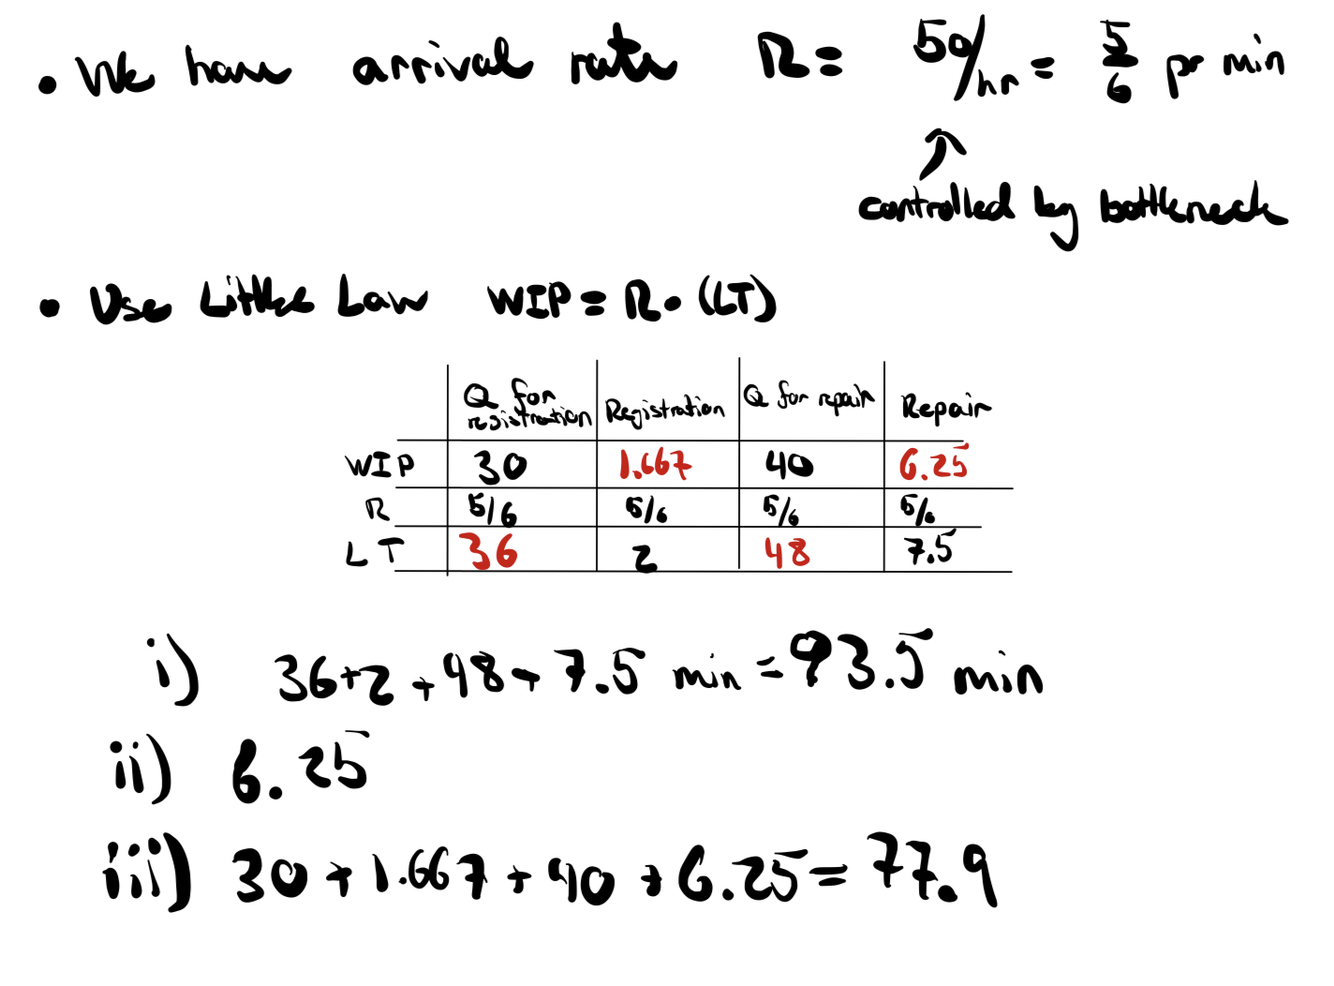 • We have arrival rate R = 50/hr = 5/6 pr min
↑
controlled by bottleneck
• Use Littles Law WIP = R • (LT)
Q for registration Registration Q for repair Repair
WIP 30 1.667 40 6.25
R 5/6 5/6 5/6 5/6
LT 36 2 48 7.5
i) 36+2+48+7.5 min = 93.5 min
ii) 6.25
iii) 30+1.667+40+6.25 = 77.9